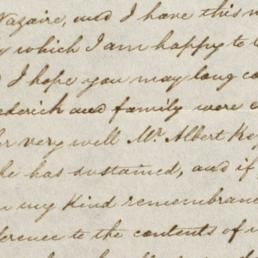 Nazaire, and I have this
which I am happy to
I hope you may long
and family were
very well Mr. Albert
he has sustained, and if
my kind remembrance
to the contents of